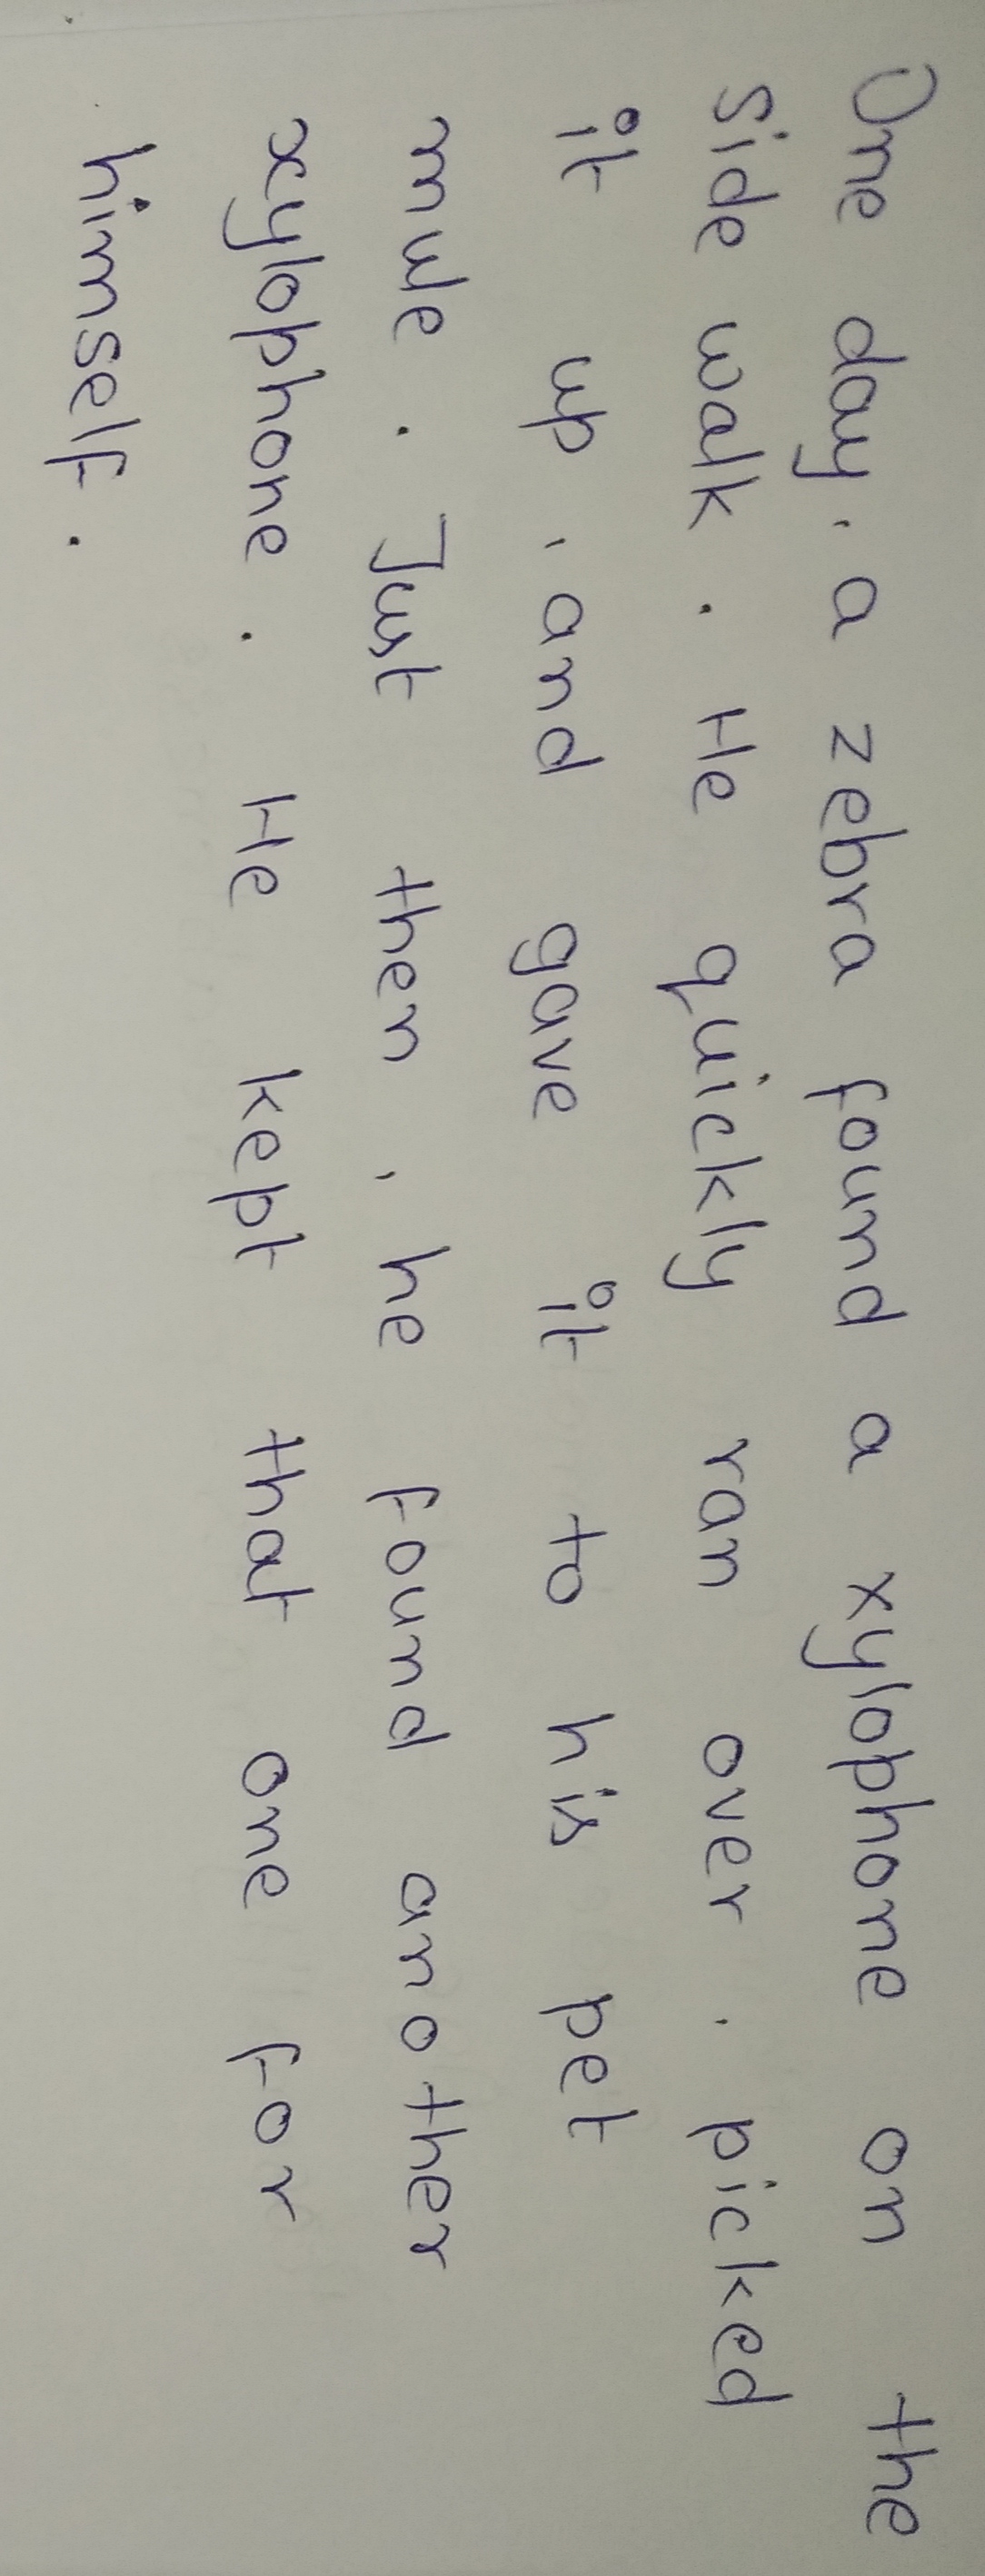 One day, a zebra found a xylophone on the
side walk. He quickly ran over, picked
it up, and gave it to his pet
mule. Just then, he found another
xylophone. He kept that one for
himself.